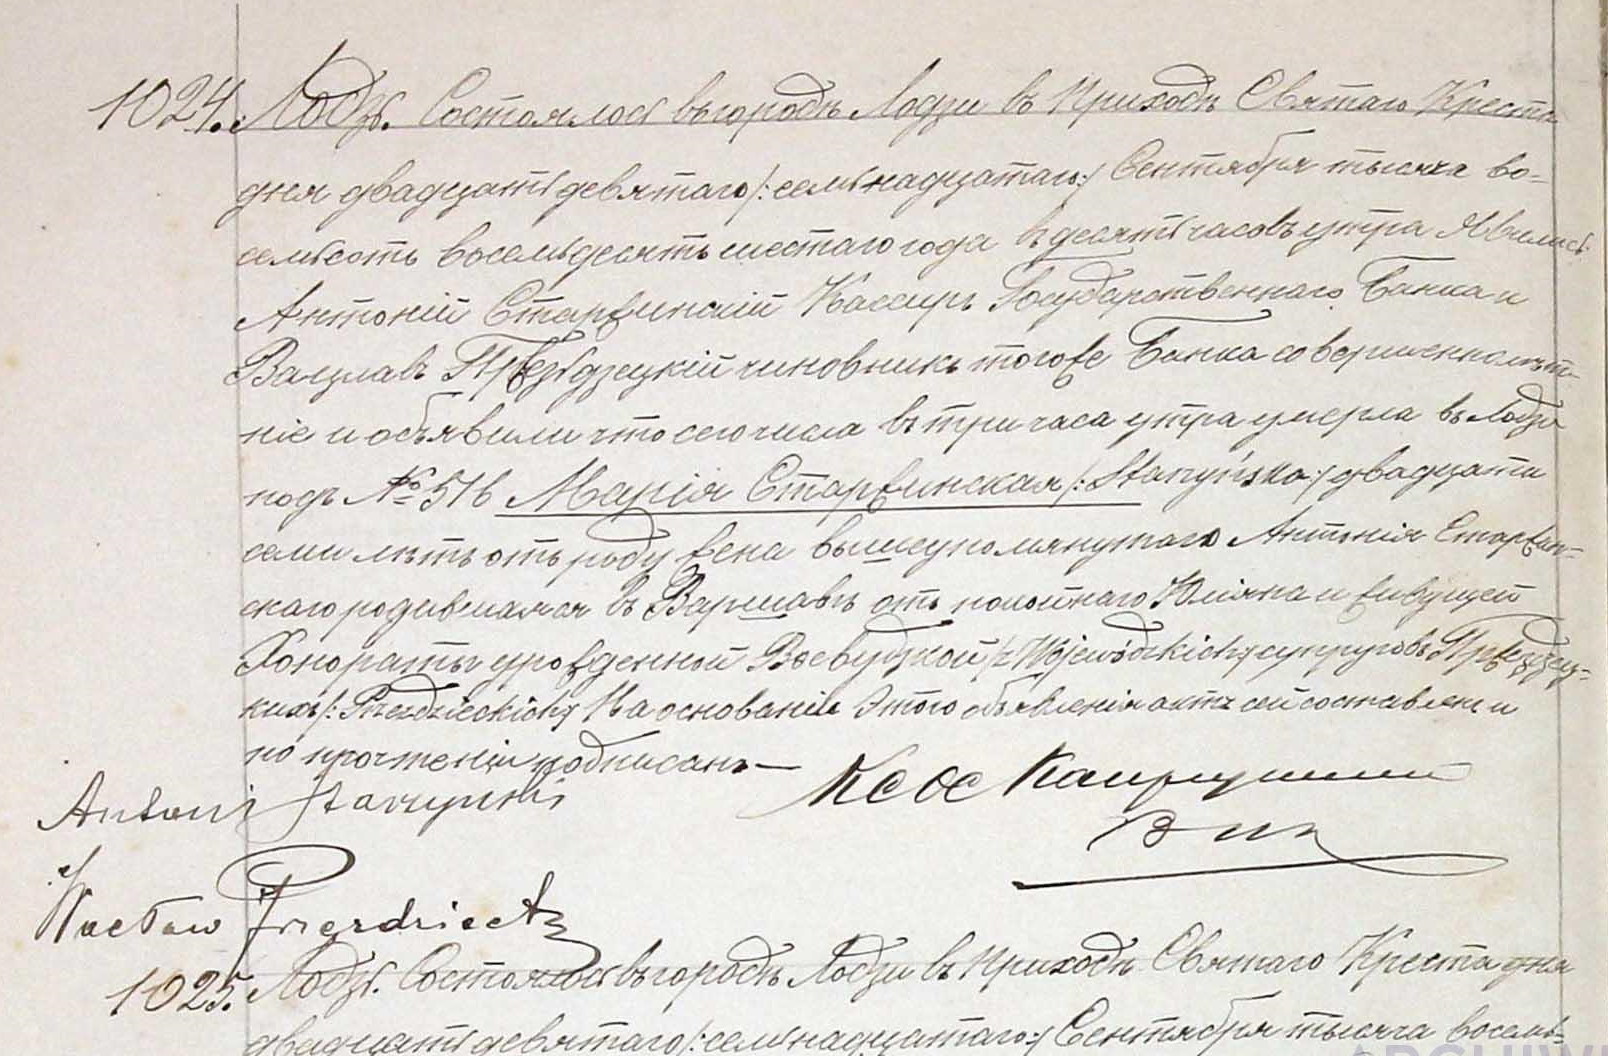 1024. Лодзь. Состоялось въ городѣ Лодзи въ Приходѣ Святаго Креста
дня двадцать девятаго /:семьнадцатаго:/ Сентября тысяча во-
семьсотъ восемьдесятъ шестаго года въ десять часовъ утра. Явились
Антоній Старжинскій Кассиръ Государственнаго Банка и
Вацлавъ Пржездзецкій чиновникъ тогоже Банка совершеннолѣт-
ніе и объявили что сего числа въ три часа утра умерла въ Лодзи
подъ № 516 Марія Старжинская /:Starzyńska:/ двадцати
семи лѣтъ отъ роду жена вышеупомянутаго Антонія Старжин-
скаго родившаяся въ Варшавѣ отъ покойнаго Юліяна и живущей
Хонораты урожденной Воевудзкой /:z Wojewódzkich:/ супруговъ Пржездзец-
кихъ /:Przezdzieckich:/ На основаніи этого объявленія актъ сей составленъ и
по прочтеніи подписанъ —
Antoni Starzyński
Wacław Przezdziecki
1025. Лодзь. Состоялось въ городѣ Лодзи въ Приходѣ Святаго Креста дня
двадцать девятаго /:семьнадцатаго:/ Сентября тысяча восемь-